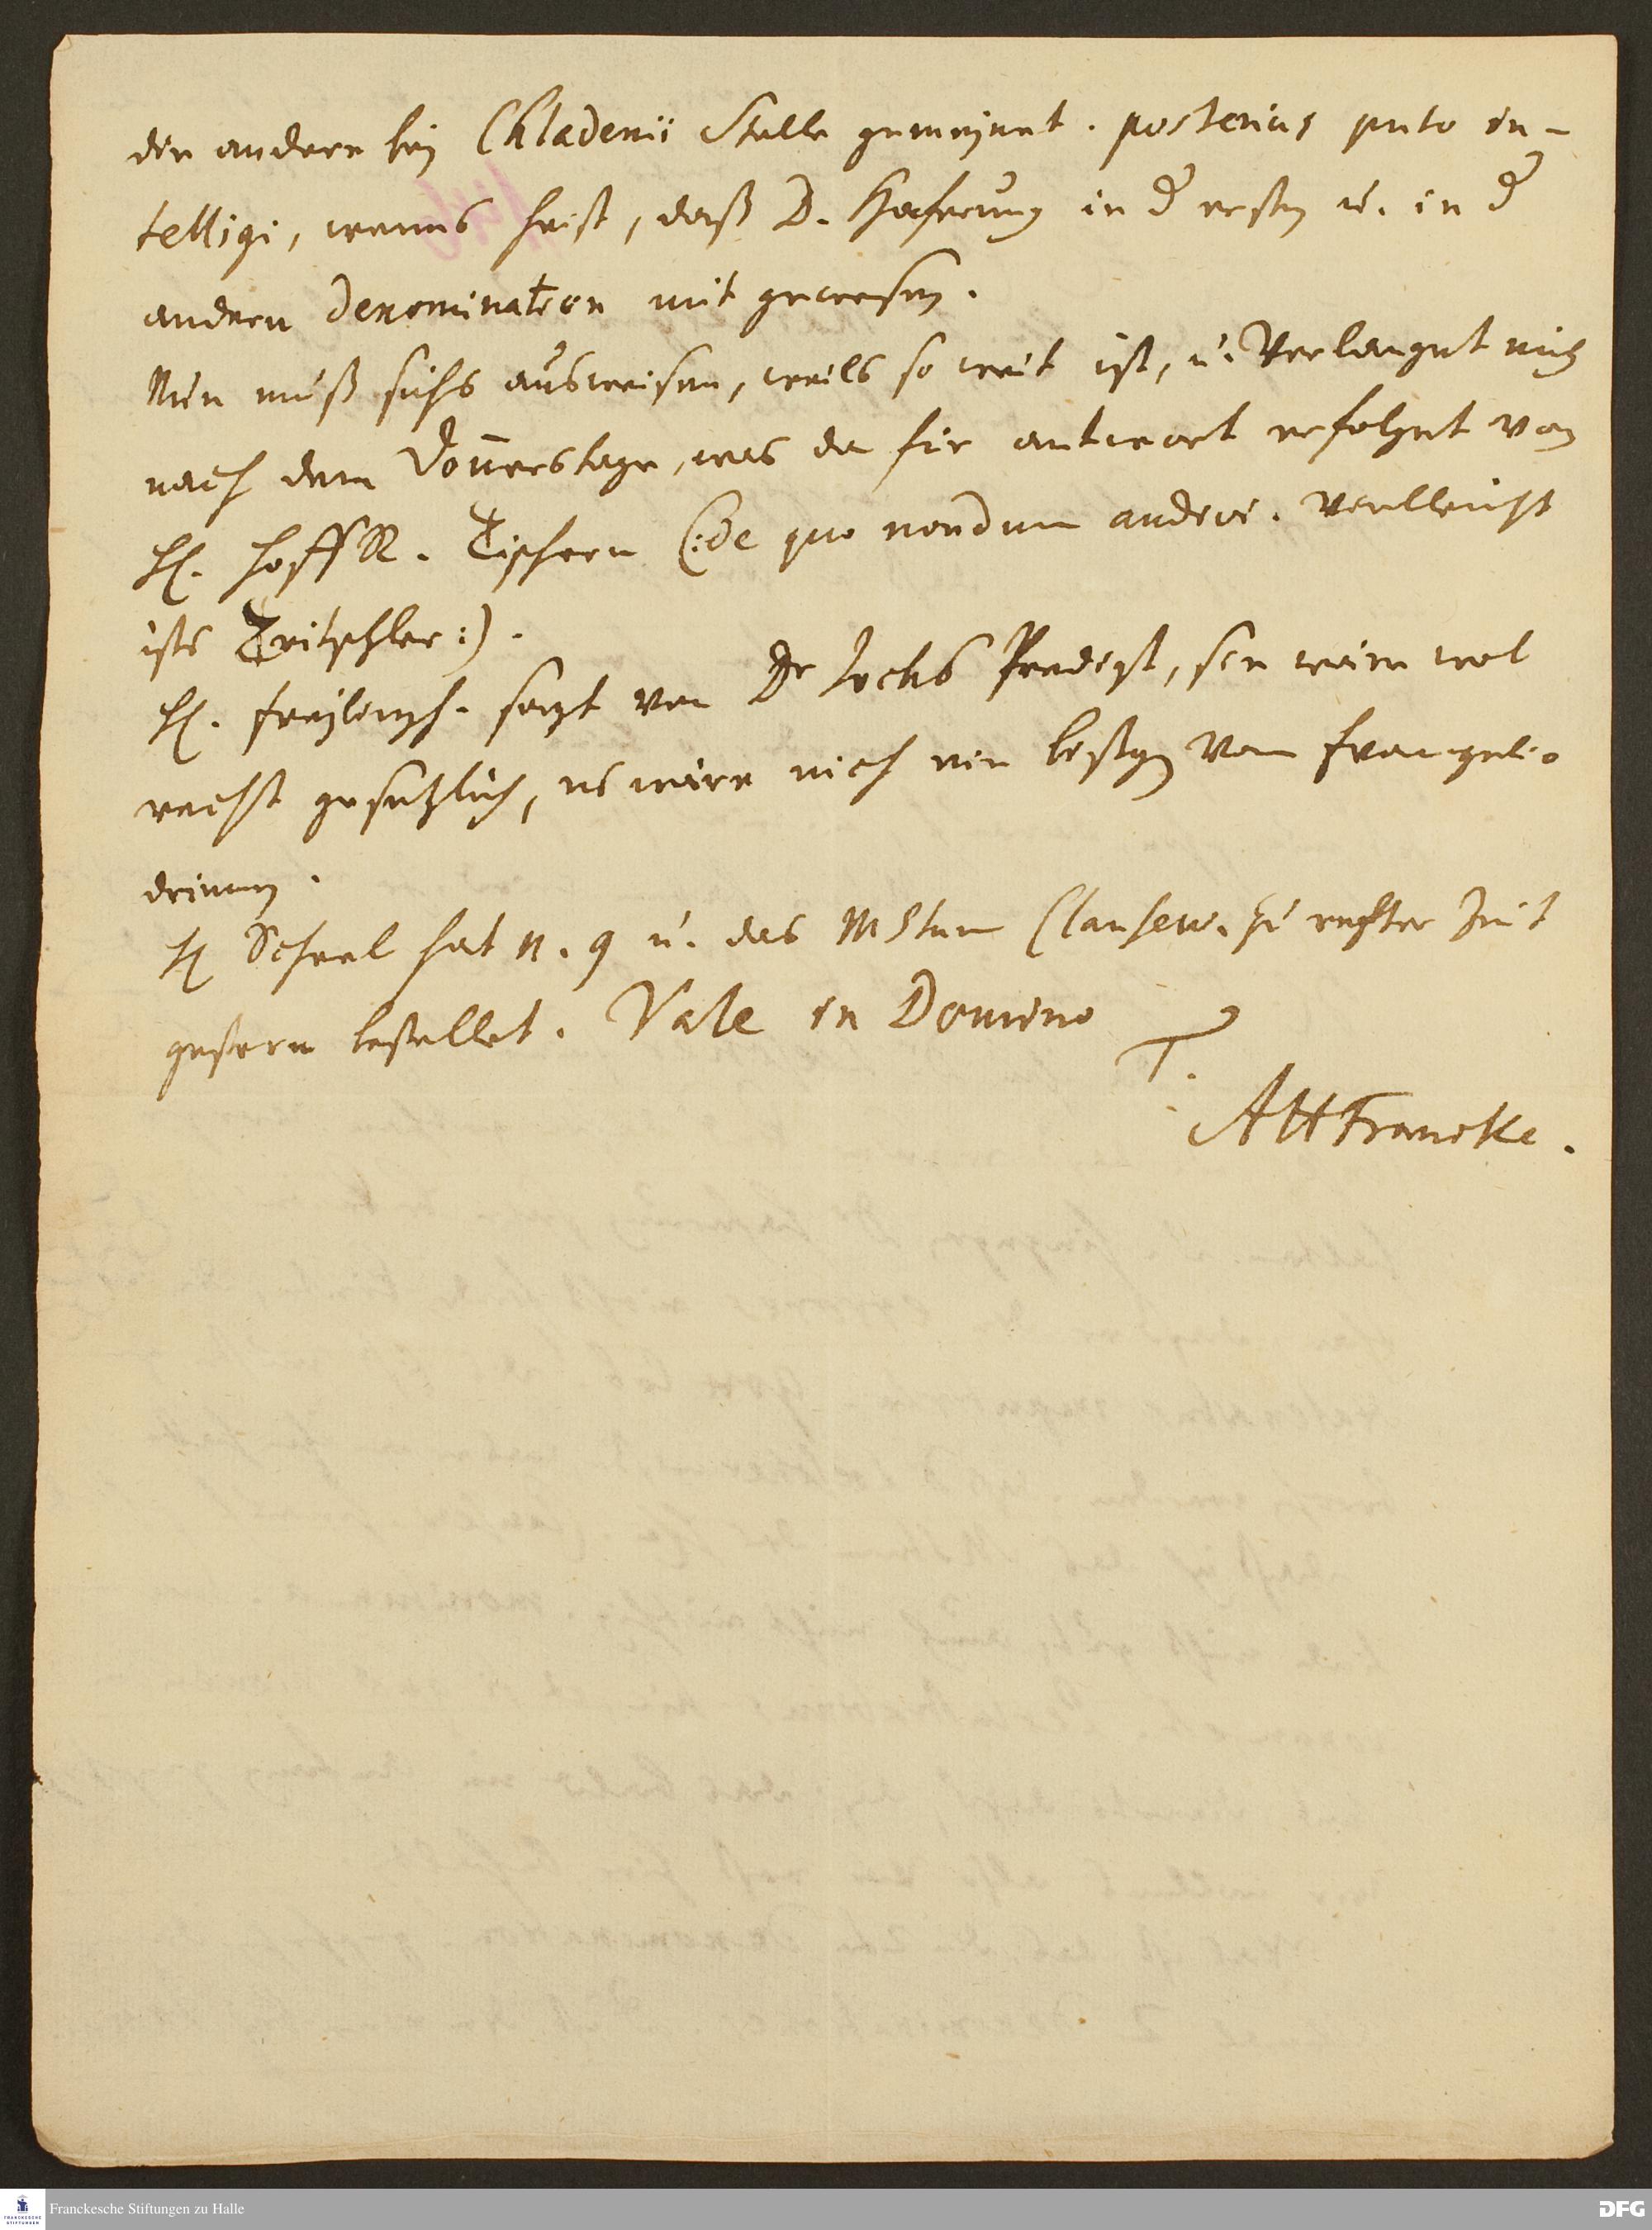 die andere bey Chladenii Stelle gemeynet. posterius puto in-
telligi, wenns heist, daß D. Haferung in der ersten u. in der
andern denomination mit gewesen.
Nun muß sichs ausweisen, weils so weit ist, u. Verlanget mich
nach dem Donnerstage, was da für antwort erfolget von
H. HoffR. Tischern (:de quo nondum audivi. Vielleicht
ists Tritschler:).
H. Freylingh. sagt von Dr Jochs Predigt, sie wäre wol
recht gesetzlich, es wäre nich ein bisgen vom Evangelio
drinnen.
H Scheel hat n. 9 u. das MStum Clausew. zu rechter Zeit
gestern bestellet. Vale in Domino
T.
AHFrancke.
Franckesche Stiftungen zu Halle
FRANCKESCHE STIFTUNGEN
DFG